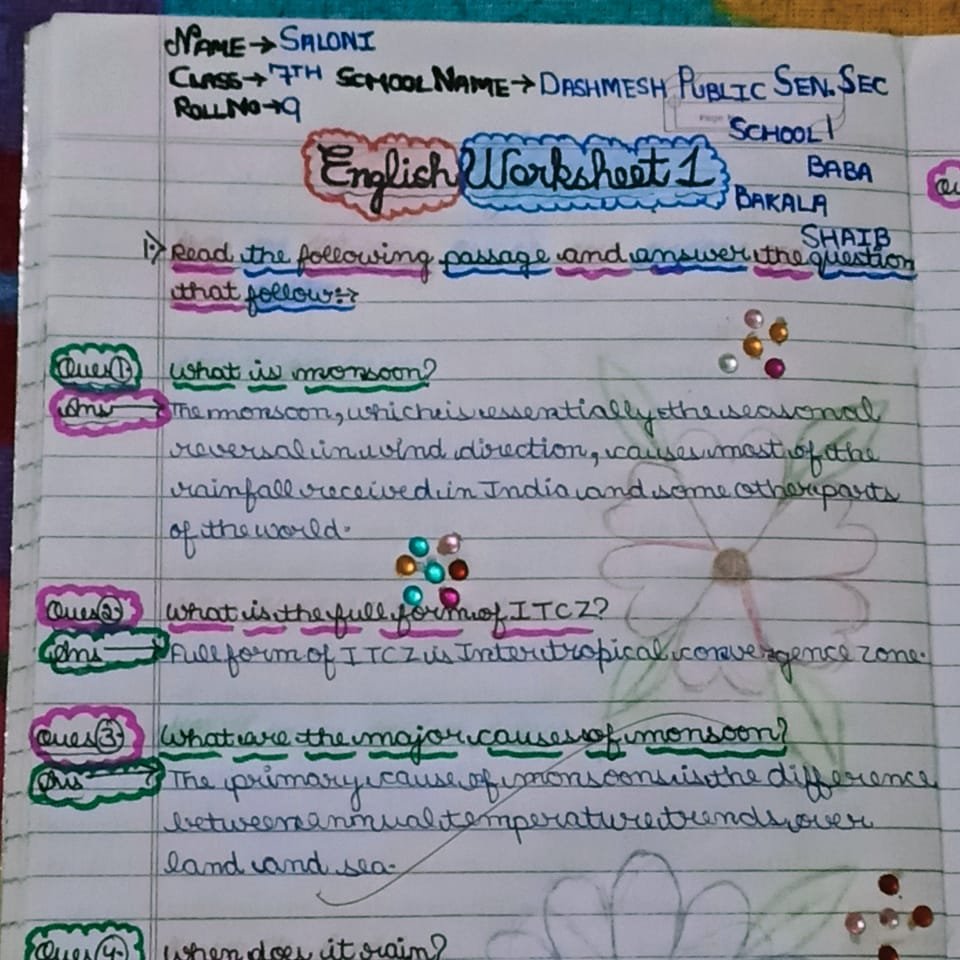 NAME → SALONI
CLASS → 7TH SCHOOL NAME → DASHMESH PUBLIC SEN. SEC
ROLL NO → 9
SCHOOL
BABA
BAKALA
SHAIB
English Worksheet 1
1.> Read the following passage and answer the question
that follow:→
Ques 1. What is monsoon?
Ans The monsoon, which is essentially the seasonal
reversal in wind direction, causes most of the
rainfall received in India and some other parts
of the world.
Ques 2. What is the full form of ITCZ?
Ans Full form of ITCZ is Inter tropical convergence zone.
Ques 3. What are the major causes of monsoon?
Ans The primary cause of monsoons is the difference
between annual temperature trends over
land and sea.
Ques 4. When does it rain?